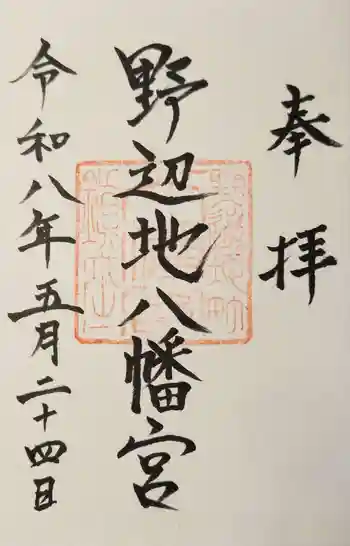 奉拝
野辺地八幡宮
令和八年五月二十四日